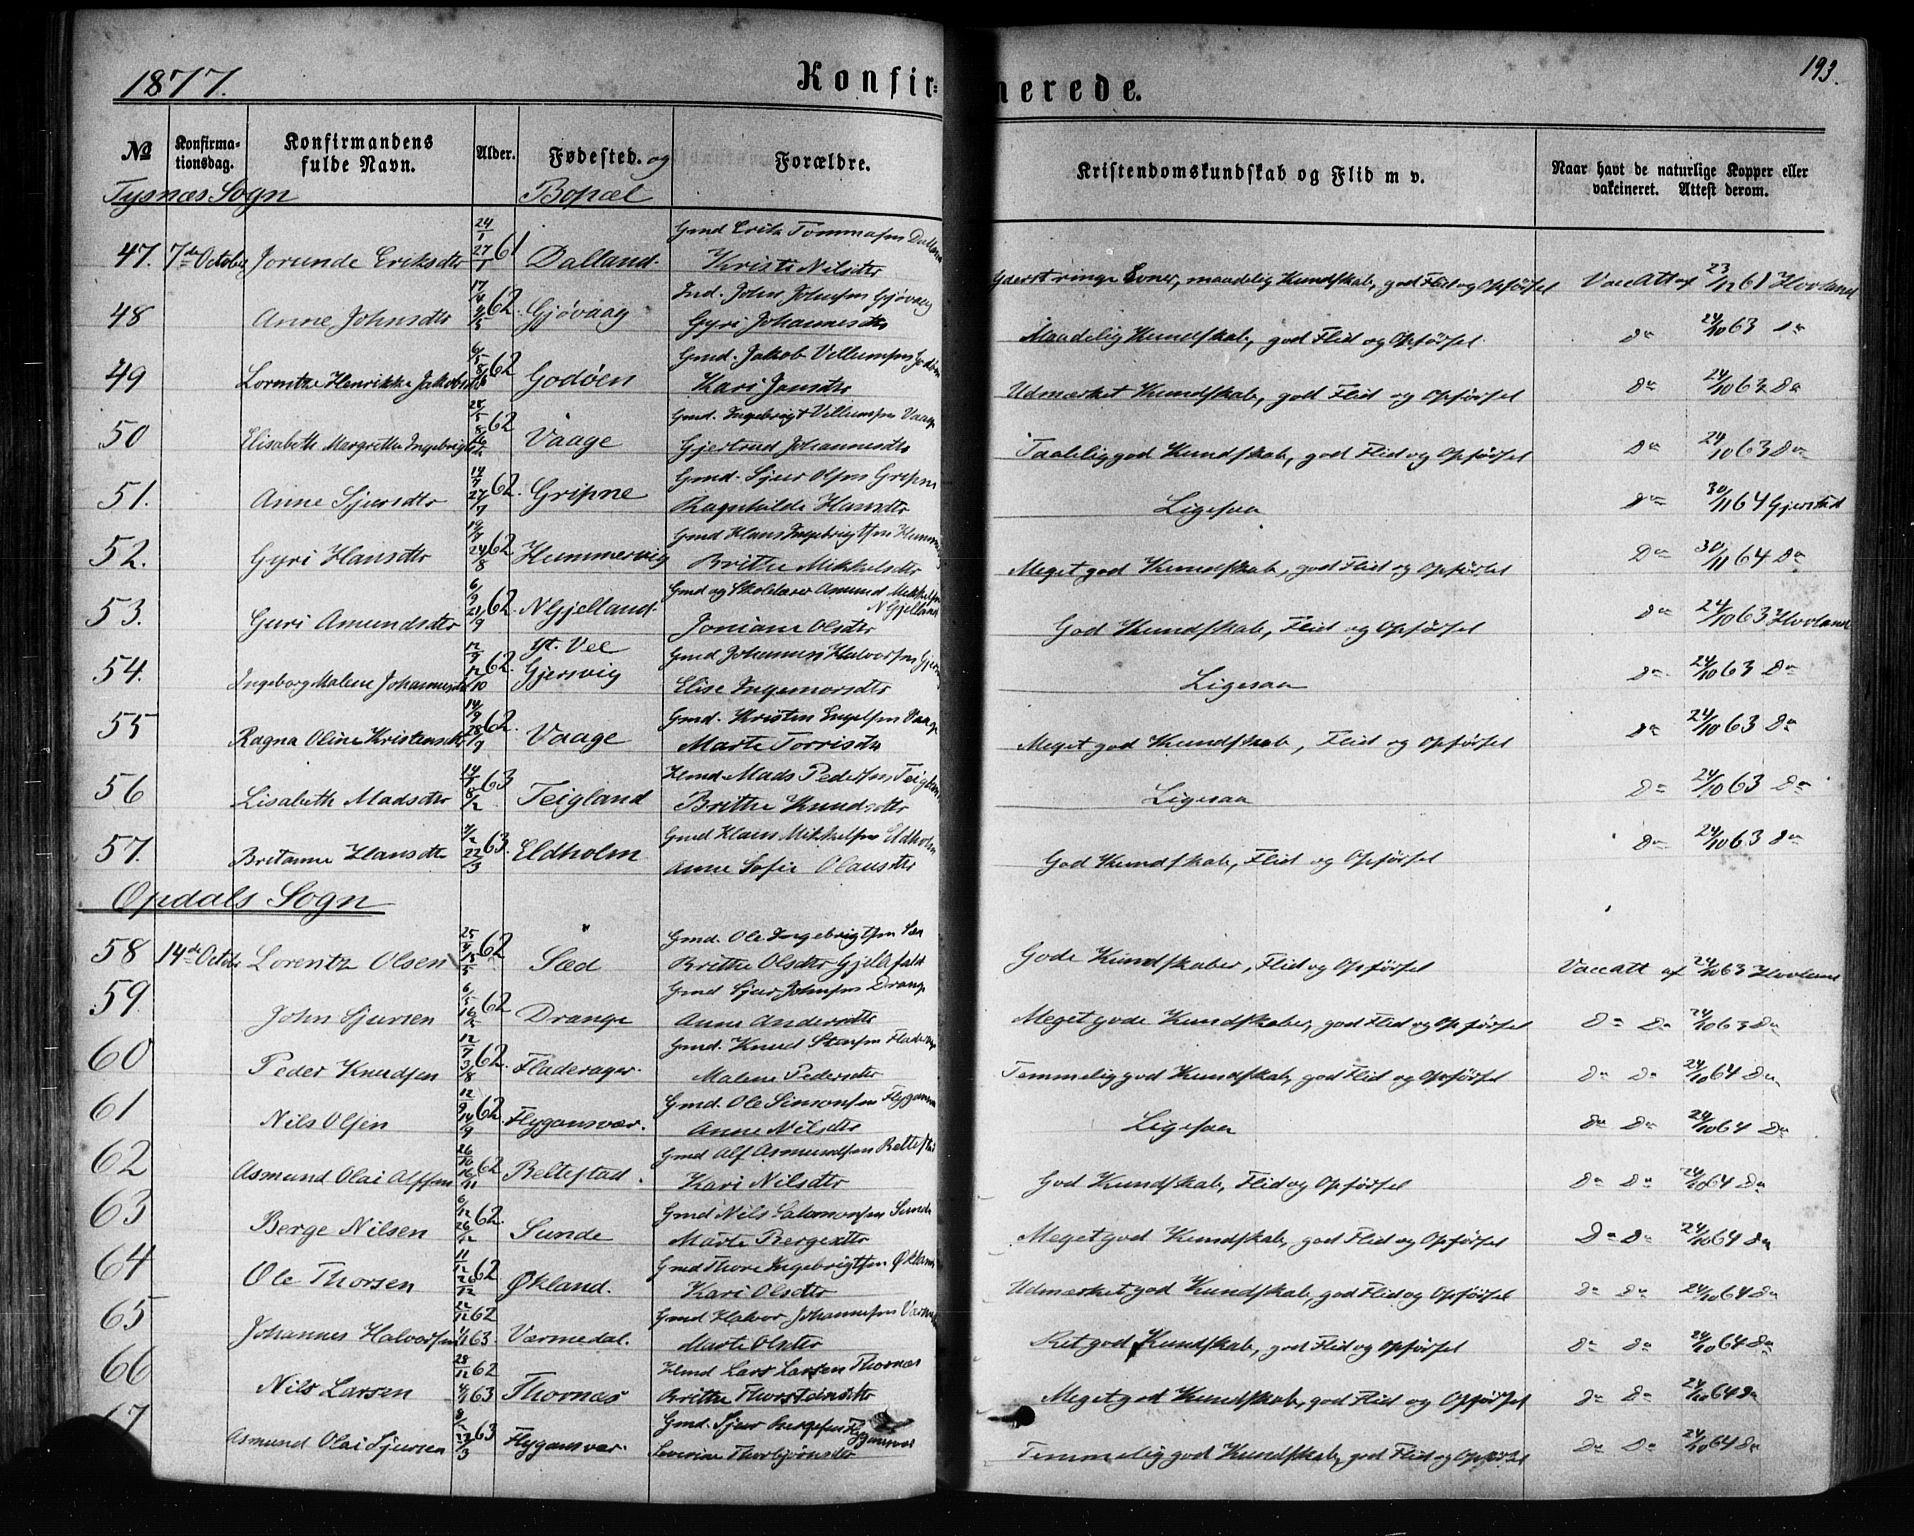 1877. Konfirmerede. 193.
No Konfirmationsdag. Konfirmandens fulde Navn. Alder. Fødested. og Forældre. Kristendomskundskab og Flid m v. Naar havt de naturlige Kopper eller vakcineret. Attest derom.
Tysnæs Sogn Bopæl
24/1 Gmd Erik Tommasen Dalland
47. 7de October Jorunde Eriksdtr 27/1 61 Dalland. Kristi Nilsdtr Yderst ringe Evner, maadelig Kundskab, god Flid og Opførsel Vacc Att af 23/12 61 Hovland
17/4 62. Ind. John Johnsen Gjøvaag
48 Anne Johnsdtr Gjøvaag Gyri Johannesdtr Maadelig Kundskab, god Flid og Opførsel. Do 24/10 63 Do
6/5 62 Gmd. Jakob Villumsen Godøen
49 Lorentze Henrikke Jakobsdtr Godøen Kari Jansdtr Udmærket Kundskab, god Flid og Opførsel Do 24/10 63 Do
28/5 62 Gmd. Ingebrigt Villumsen Vaage
50 Elisabeth Margrethe Ingebrigtsdtr Vaage Gjertrud Johannesdtr Taalelig god Kundskab, god Flid og Opførsel Do 24/10 63 Do
14/7 62. Gmd. Sjur Olsen Gripne
51. Anne Sjursdtr 27/7 Gripne Ragnhilde Hansdtr Ligesaa Do 30/11 64 Gjerstad
19/7 62 Gmd Hans Ingebrigtsen Hummervig
52. Gyri Hansdtr 24/8 Hummervig Brithe Mikkelsdtr Meget god Kundskab, god Flid og Opførsel Do 30/11 64 Do
6/9 62. Gmd og Skolelærer Amund Mikkelsen N Gjelland
53. Guri Amundsdtr 21/9 N Gjelland. Joniane Olsdtr God Kundskab, Flid og Opførsel Do 24/10 63 Hovland
12/9 62 Yt. Vee Gmd Johannes Halvorsen Gjersvig
54. Ingeborg Malene Johannesdtr 12/10 Gjersvig Elise Ingemorsdtr Ligesaa Do 24/10 63 Do
14/9 62. Gmd. Kristen Engelsen Vaage
55 Ragna Oline Kristensdtr 28/9 Vaage Marte Torrisdtr Meget god Kundskab, Flid og Opførsel Do 24/10 63 Do
63 Hmd Mads Pedersen Teigland
56 Lisabeth Madsdtr 8/2 Teigland Brithe Knudsdtr Ligesaa Do 24/10 63 Do
63. Gmd Hans Mikkelsen Eldholm
57. Britanna Hansdtr 22/3 Eldholm Anne Sofie Olausdtr God Kundskab, Flid og Opførsel Do 24/10 63 Do
Opdals Sogn
25/4 62 Gmd. Ole Ingebrigtsen Sæd
58 14de October Lorentz Olsen 18/5 Sæd Brithe Olsdtr Gjelefald Gode Kundskaber, Flid og Opførsel Vacc att af 24/10 63 Hovland
6/5 62 Gmd Sjur Johnsen Drange
59. John Sjursen Drange Anne Andersdtr Meget gode Kundskaber, god Flid og Opførsel Do Do 24/10 63 Do
12/7 62. Gmd. Knud Larsen Fladerager
60 Peder Knudsen 3/8 Fladerager. Malene Pedersdtr Temmelig god Kundskab, god Flid og Opførsel Do Do 24/10 64 Do
12/9 62. Gmd. Ole Simonsen Flygansvær
61 Nils Olsen 14/9 Flygansvær. Anne Nilsdtr Ligesaa Do Do 24/10 64 Do
26/10 62 Gmd Alf Asmundsen Beltestad
62 Asmund Olai Alfsen 16/11 Beltestad. Kari Nilsdtr God Kundskab, Flid og Opførsel Do Do 24/10 64 Do
6/12 62. Gmd Nils Salamonsen Sunde
63 Berge Nilsen 26/12 Sunde Marte Bergesdtr Meget god Kundskab, god Flid og Opførsel Do Do 24/10 64 Do
11/12 62 Gmd Thore Ingebrigtsen Økland
64 Ole Thorsen 26/12 Økland. Kari Olsdtr Udmærket god Kundskab, god Flid og Opførsel Do Do 24/10 64 Do
22/12 62 Gmd Halvor Johannesen Værmedal
65 Johannes Halvorsen 1/1 63. Værmedal. Marte Olsdtr Ret god Kundskab, god Flid og Opførsel Do Do 24/10 64 Do
28/12 62 Hmd Lars Larsen Thornæs
66 Nils Larsen 4/1 63 Thornæs Brithe Thorsteinsdtr Meget god Kundskab, god Flid og Opførsel Do Do 24/10 64 Do
63 Gmd. Sjur Bergesen Flygansvær
67 Asmund Olai Sjursen 22/3 Flygansvær. Lovine Thorbjørnsdtr Temmelig god Kundskab, god Flid og Opførsel Do Do 24/10 64 Do